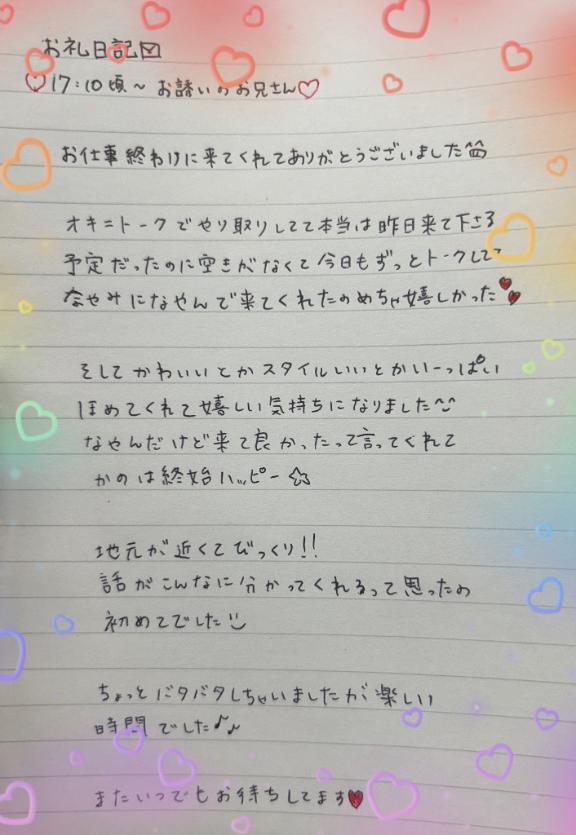 お礼日記〼
♡17:10頃~お誘いのお兄さん♡
お仕事終わりに来てくれてありがとうございました
オキニトークでやり取りしてて本当は昨日来て下さる
予定だったのに空きがなくて今日もずっとトークして
なやみになやんで来てくれたのめちゃ嬉しかった
そしてかわいいとかスタイルいいとかいーっぱい
ほめてくれて嬉しい気持ちになりました
なやんだけど来て良かったって言ってくれて
かのは終始ハッピー☆
地元が近くてびっくり!!
話がこんなに分かってくれるって思ったの
初めてでした
ちょっとバタバタしちゃいましたが楽しい
時間でした♪♪
またいつでもお待ちしてます♥